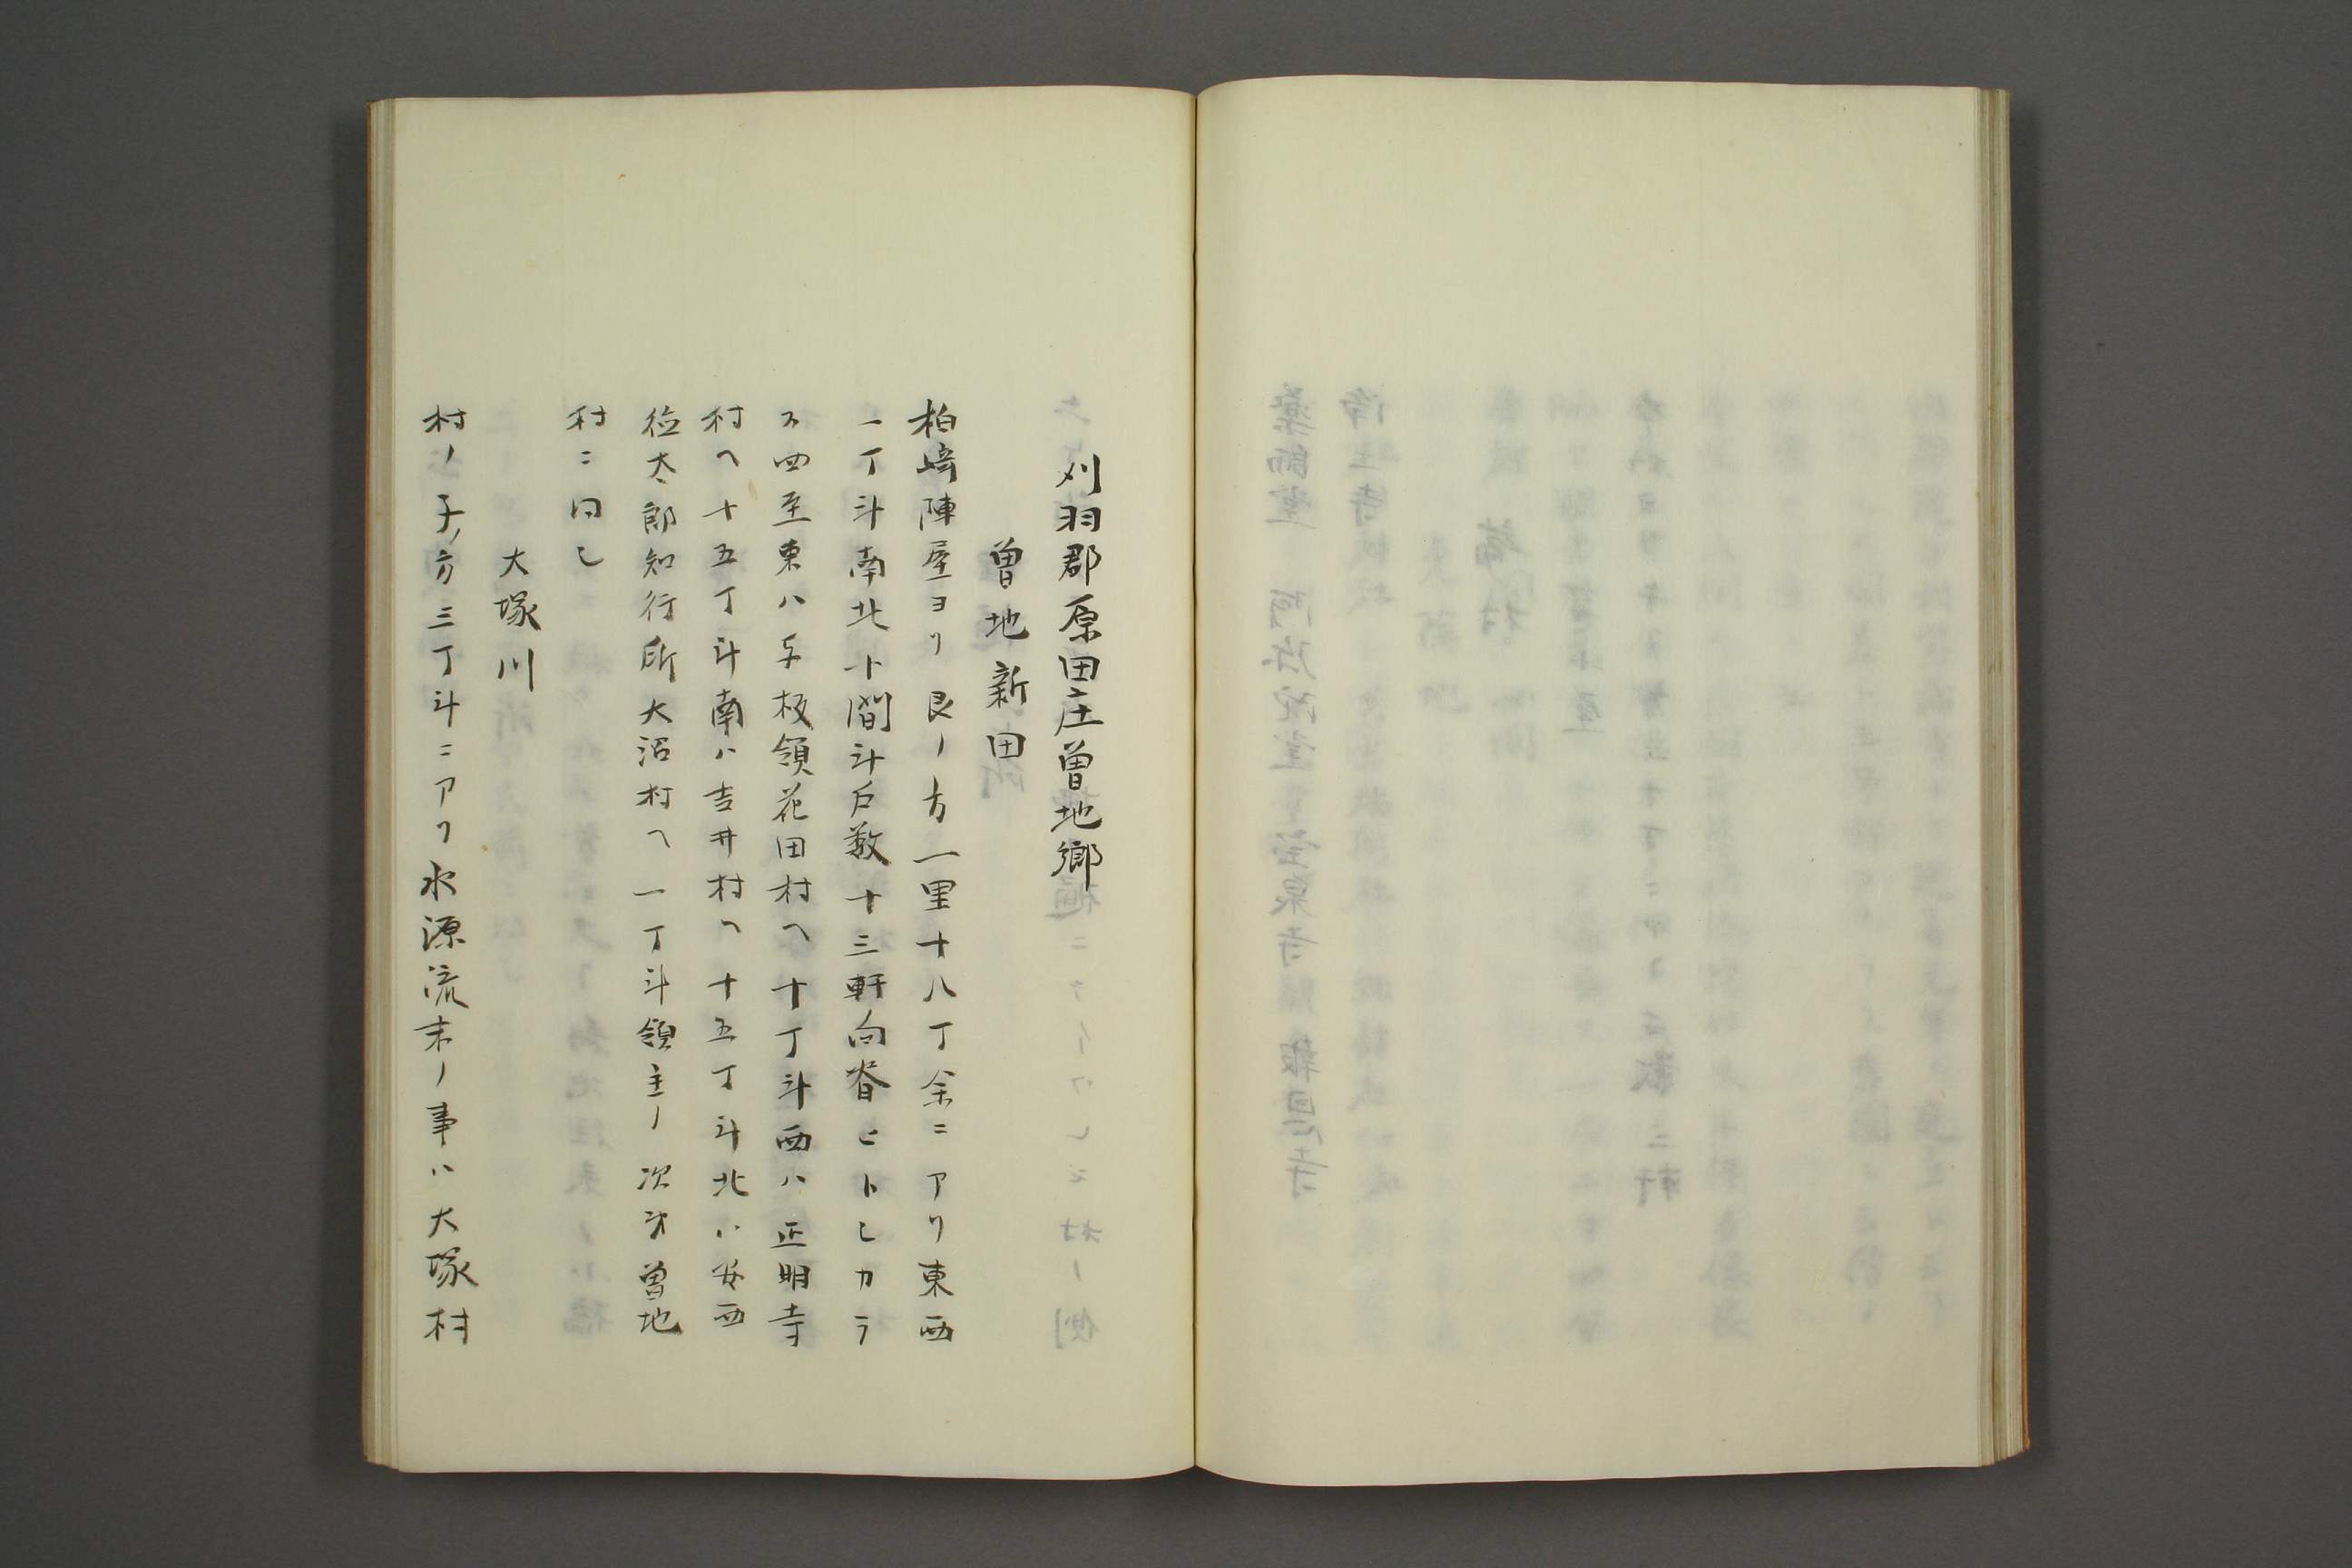 刈羽郡原田庄曽地郷
曽地新田
柏崎陣屋ヨリ艮ノ方一里十八丁余ニアリ東西
一丁斗南北十間斗戸数十三軒向背ヒトシカラ
ス四至東ハ与板領花田村ヘ十丁斗西ハ正明寺
村ヘ十五丁斗南ハ吉井村ヘ十五丁斗北ハ安西
徳太郎知行所大沼村ヘ一丁斗領主ノ次第曽地
村ニ同し
大塚川
村ノ子ノ方三丁斗ニアリ水源流末ノ事ハ大塚村